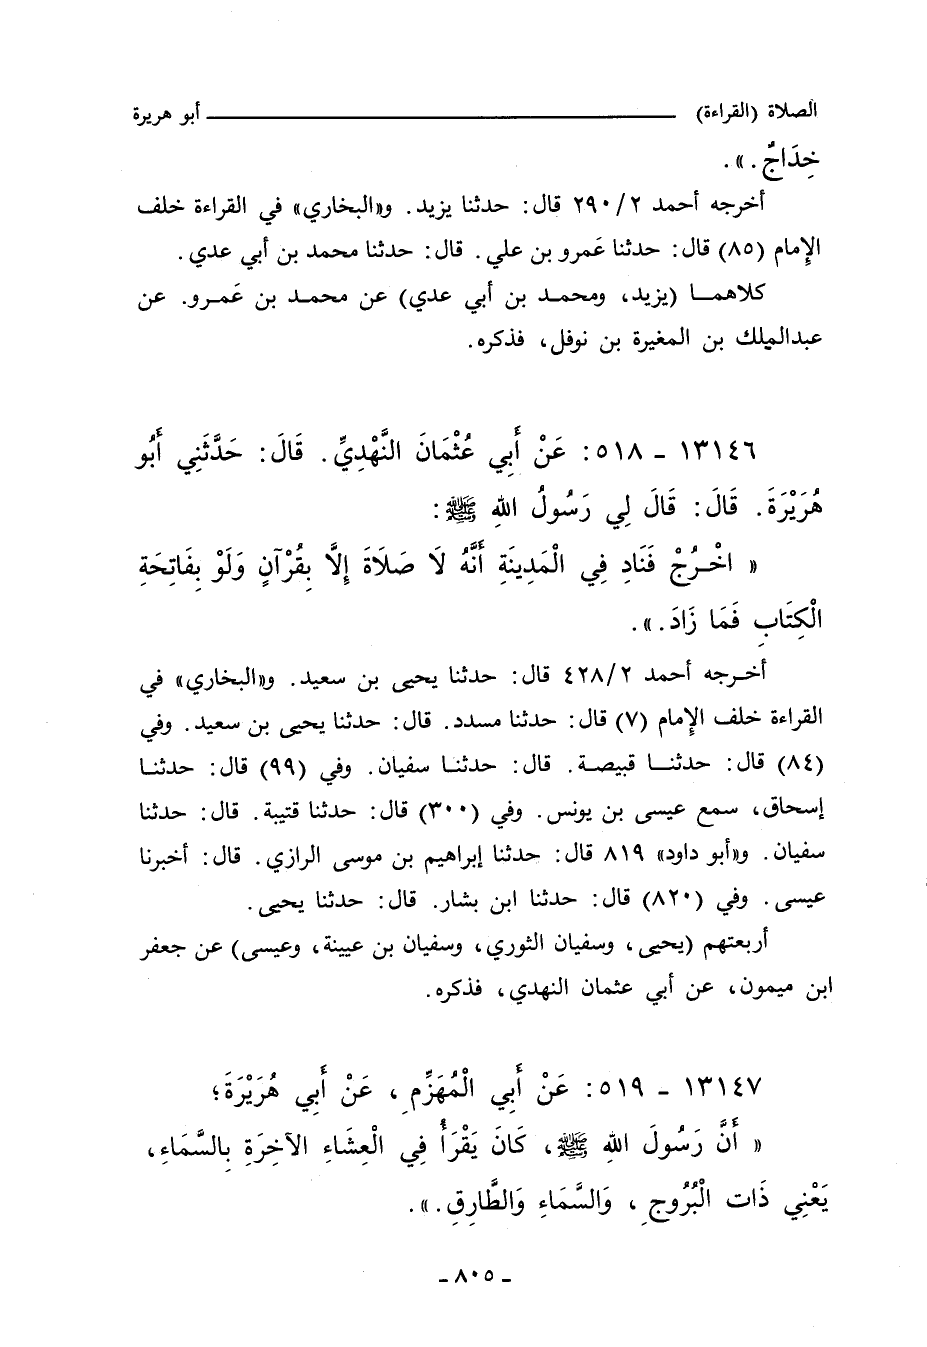 الصلاة (القراءة) أبو هريرة
خِدَاجٌ.».
أخرجه أحمد ٢/ ٢٩٠ قال: حدثنا يزيد. و«البخاري» في القراءة خلف
الإمام (٨٥) قال: حدثنا عَمرو بن علي. قال: حدثنا محمد بن أبي عدي.
كلاهما (يزيد، ومحمد بن أبي عدي) عن محمد بن عَمرو. عن
عبدالملك بن المغيرة بن نوفل، فذكره.
١٣١٤٦ - ٥١٨: عَنْ أَبِي عُثْمَانَ النَّهْدِيِّ. قَالَ: حَدَّثَنِي أَبُو
هُرَيْرَةَ. قَالَ: قَالَ لِي رَسُولُ اللهِ ﷺ:
« اخْرُجْ فَنَادِ فِي الْمَدِينَةِ أَنَّهُ لَا صَلَاةَ إِلَّا بِقُرْآنٍ وَلَوْ بِفَاتِحَةِ
الْكِتَابِ فَمَا زَادَ.».
أخرجه أحمد ٢/ ٤٢٨ قال: حدثنا يحيى بن سعيد. و«البخاري» في
القراءة خلف الإمام (٧) قال: حدثنا مسدد. قال: حدثنا يحيى بن سعيد. وفي
(٨٤) قال: حدثنا قبيصة. قال: حدثنا سفيان. وفي (٩٩) قال: حدثنا
إسحاق، سمع عيسى بن يونس. وفي (٣٠٠) قال: حدثنا قتيبة. قال: حدثنا
سفيان. و«أبو داود» ٨١٩ قال: حدثنا إبراهيم بن موسى الرازي. قال: أخبرنا
عيسى. وفي (٨٢٠) قال: حدثنا ابن بشار. قال: حدثنا يحيى.
أربعتهم (يحيى، وسفيان الثوري، وسفيان بن عيينة، وعيسى) عن جعفر
ابن ميمون، عن أبي عثمان النهدي، فذكره.
١٣١٤٧ - ٥١٩: عَنْ أَبِي الْمُهَزِّمِ، عَنْ أَبِي هُرَيْرَةَ؛
« أَنَّ رَسُولَ اللهِ ﷺ، كَانَ يَقْرَأُ فِي الْعِشَاءِ الآخِرَةِ بِالسَّمَاءِ،
يَعْنِي ذَات الْبُرُوجِ، وَالسَّمَاءِ وَالطَّارِقِ.».
- ٨٠٥ -